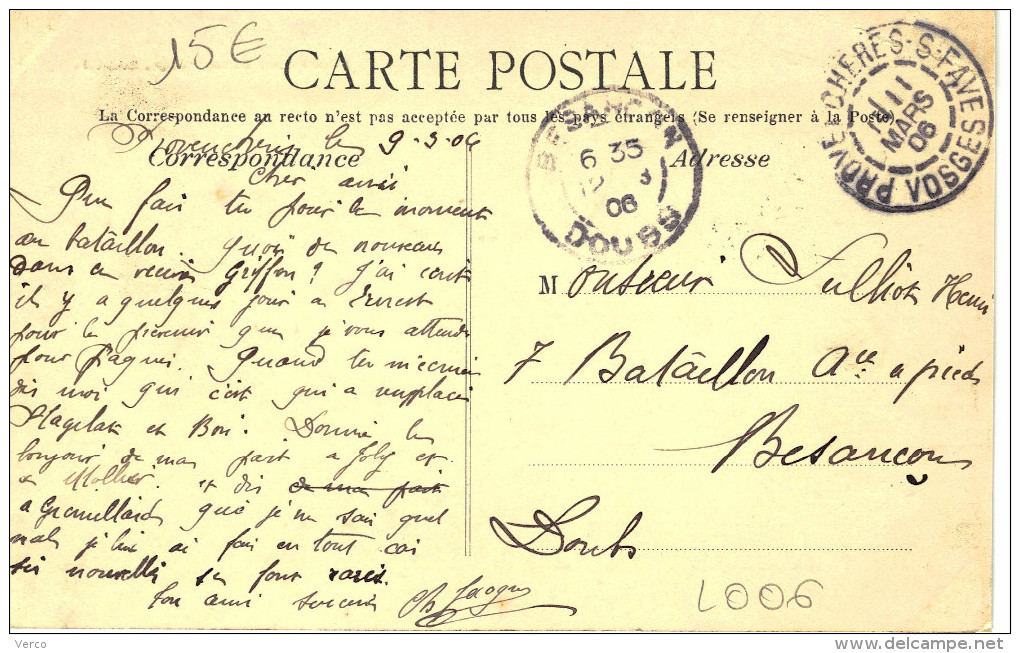 15€
CARTE POSTALE
La Correspondance au recto n'est pas acceptée par tous les pays étrangers (Se renseigner à la Poste)
PROVENCHERES-S-FAVE VOSGES
11
MARS
06
BESANCON
6 35
3
06
DOUBS
Correspondance
Adresse
le 9-3-06
Cher ami
Que fais tu pour le moment
au bataillon. Quoi de nouveau
dans en Griffon? J'ai écrit
il y a quelques jour a Ernest
pour le prévenir que je vous attends
pour Paques. Quand tu m'écriras
dis moi qui c'est qui a remplacé
et Bon. Donne le
bonjour de ma part a Joly et
a Mollier. et dis de ma part
a que je ne sais quel
mal je lui ai fais en tout cas
ses nouvelles se font rares.
Ton ami sincère Ch Jacques
Monsieur Julliot Henri
7 Bataillon Aie a pieds
Besançon
Doubs
L006
Verco
www.delcampe.net